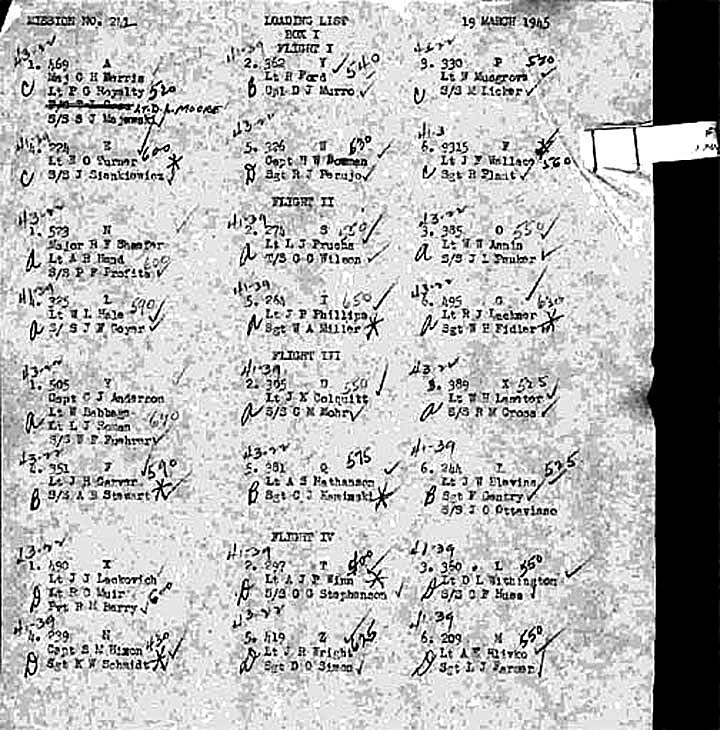 MISSION NO. 241 LOADING LIST 19 MARCH 1945
BOX I
FLIGHT I
43-22 41-39 43-22
1. 469 A 2. 362 Y 540 3. 330 P 570
Maj C H Morris Lt R Ford Lt W Musgrove
C Lt P G Royalty 520 B Cpl D J Murro C S/S M Licker
LT. D. L. MOORE
S/S S J Majewski
43-22 41-3
4. 224 E 600 5. 326 W 630 6. 9315 F
Lt E O Turner Capt W W Bowman Lt J F Wallace 560
C S/S J Sienkiowicz D Sgt R J Perujo C Sgt R Plant
FLIGHT II
43-22 41-39 43-22
1. 573 N 2. 274 S 550 3. 385 O 550
Major R F Shaefer Lt L J Prucha Lt W W Annin
a Lt A R Hand 600 a T/S G G Wilson a S/S J L Peuker
S/S P F Profita
41-39 41-39 43-22
4. 325 L 590 5. 264 I 650 6. 495 G 630
Lt W L Hale Lt J P Phillips Lt R J Lackner
a S/S J W Goyer a Sgt W A Miller a Sgt W H Fidler
FLIGHT III
43-22 41-39
1. 505 Y 2. 305 D 550 3. 389 X 525
Capt C J Anderson Lt J K Colquitt Lt W H Lassiter
a Lt W Babbage a S/S G M Mohr a S/S R M Cross
Lt L J Roman 640
S/S W F Fuehrer
43-22 41-39
4. 351 F 590 5. 381 Q 575 6. 244 525
Lt J H Garver Lt A S Nathanson Lt J W Blevins
B S/S A B Stewart B Sgt C J Kaminski B Sgt F Gentry
S/S J O Ottaviano
FLIGHT IV
43-22 41-39 41-39
1. 490 X 2. 297 T 3. 350 L 550
Lt J J Leckovich Lt A J P Winn Lt D L Withington
D Lt R C Muir 600 D S/S O G Stephenson D S/S C F Huss
Pvt R M Barry
41-39 43-22 41-39
4. 239 N 5. 419 Z 6. 209 M 550
Capt S M Hixon Lt J R Wright Lt A E Hlivko
D Sgt K W Schmidt D Sgt D O Simon D Sgt L J Farmer